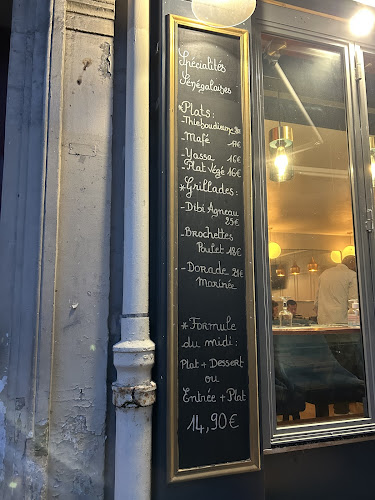 Spécialités
Sénégalaises
*Plats:
-Thieboudienne
Mafé 17€
-Yassa 16€
-Plat Végé 16€
*Grillades:
-Dibi Agneau
25€
-Brochettes
Poulet 18€
-Dorade 21€
Marinée
*Formule
du midi:
Plat + Dessert
ou
Entrée + Plat
14,90€